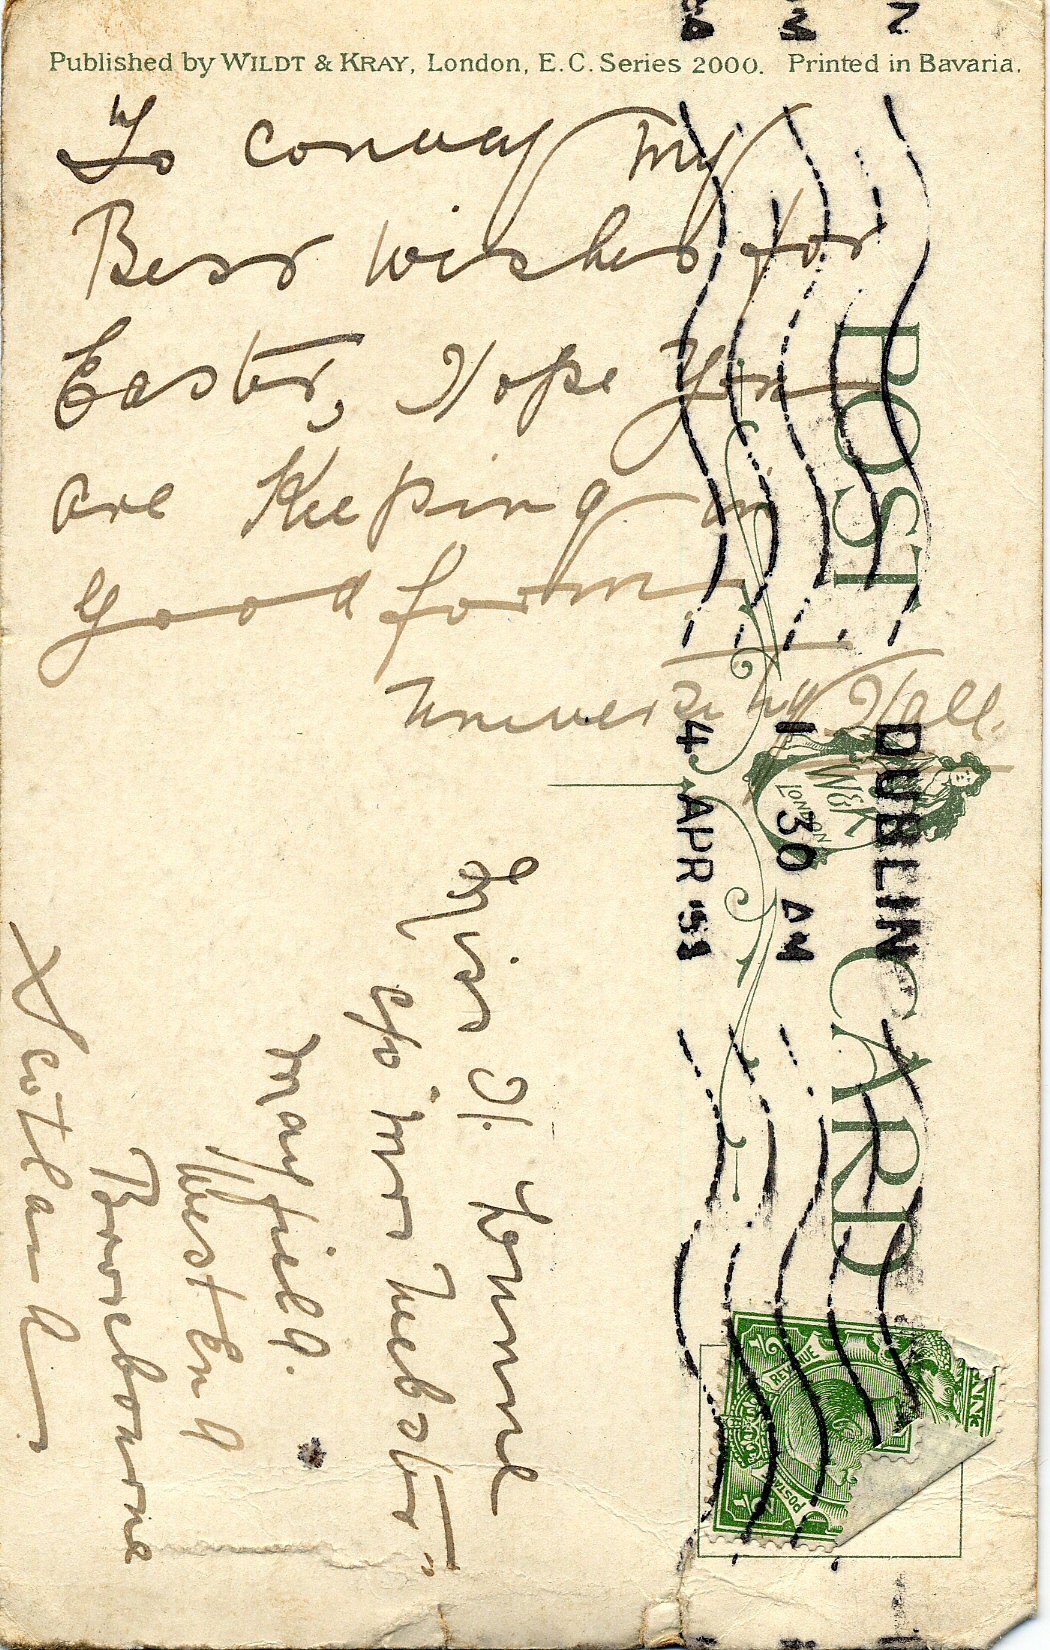 Published by WILDT & KRAY, London, E.C. Series 2000. Printed in Bavaria.
To convay my
Best wishes for
Easter, Hope you
are Keeping in
good form
University Hall.
POST CARD
W&K
LONDON
DUBLIN
1 30 AM
4 APR
Miss H.
c/o Mrs Webster
Mayfield.
West End
Scotland
REVENUE
POSTAGE
1/2
1/2